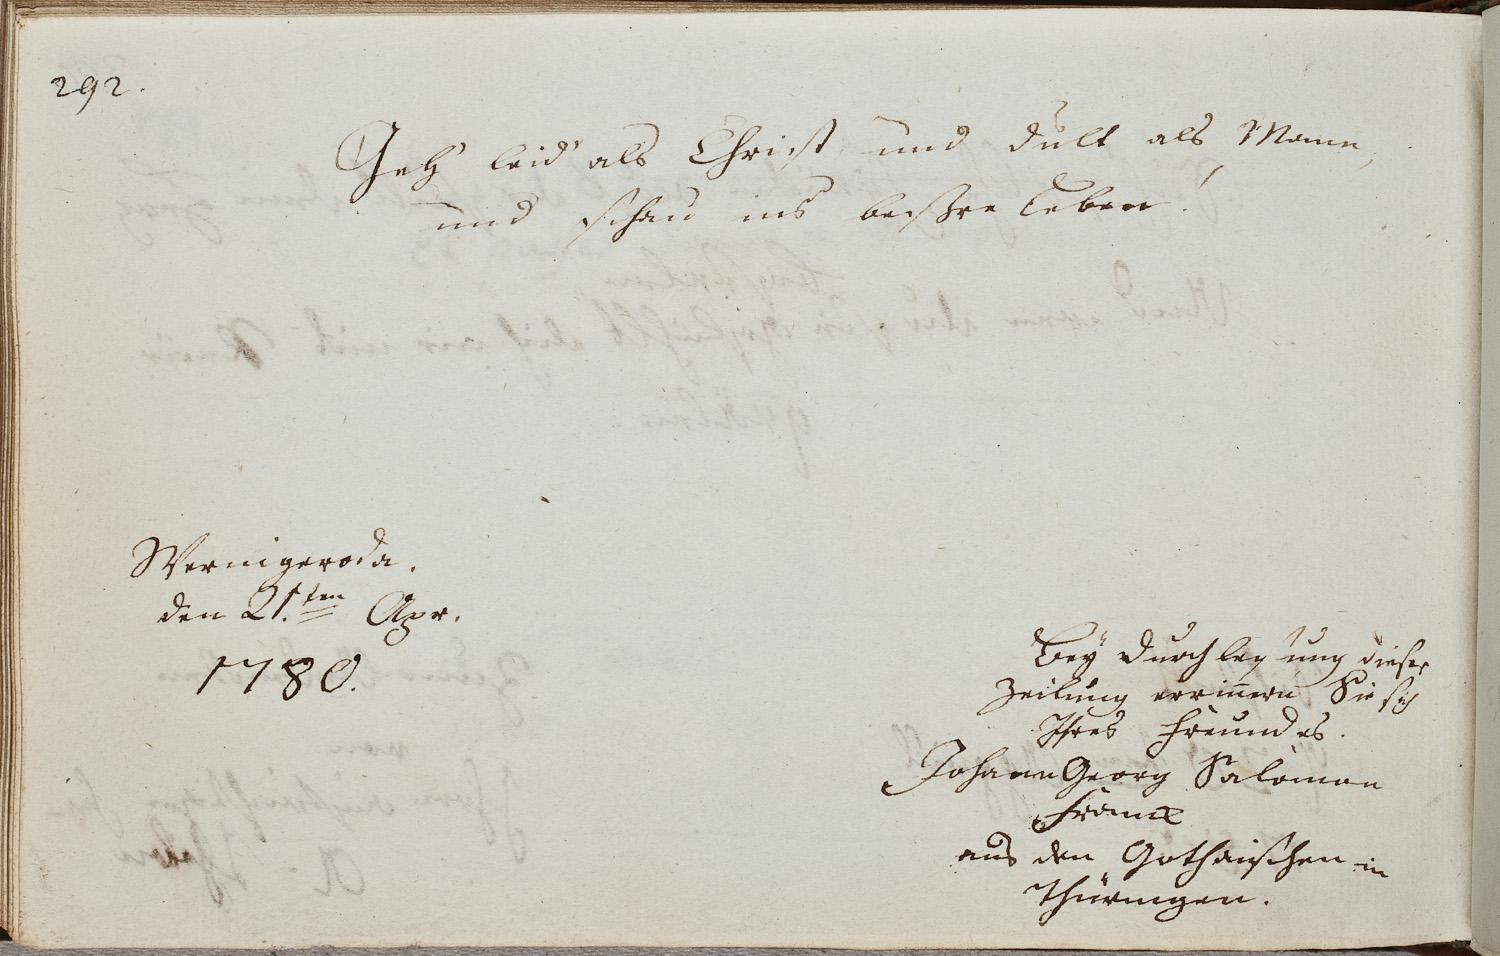 292.
Geh leid' als Christ und dult als Mann,
und schau ins bessre Leben!
Wernigeroda.
den 21.ten Apr.
1780.
Bey Durchlesung dieser
Zeilung errinnern Sie sich
Ihres Freundes.
Johann Georg Salomon
Franck
aus den Gothaischen in
Thüringen.